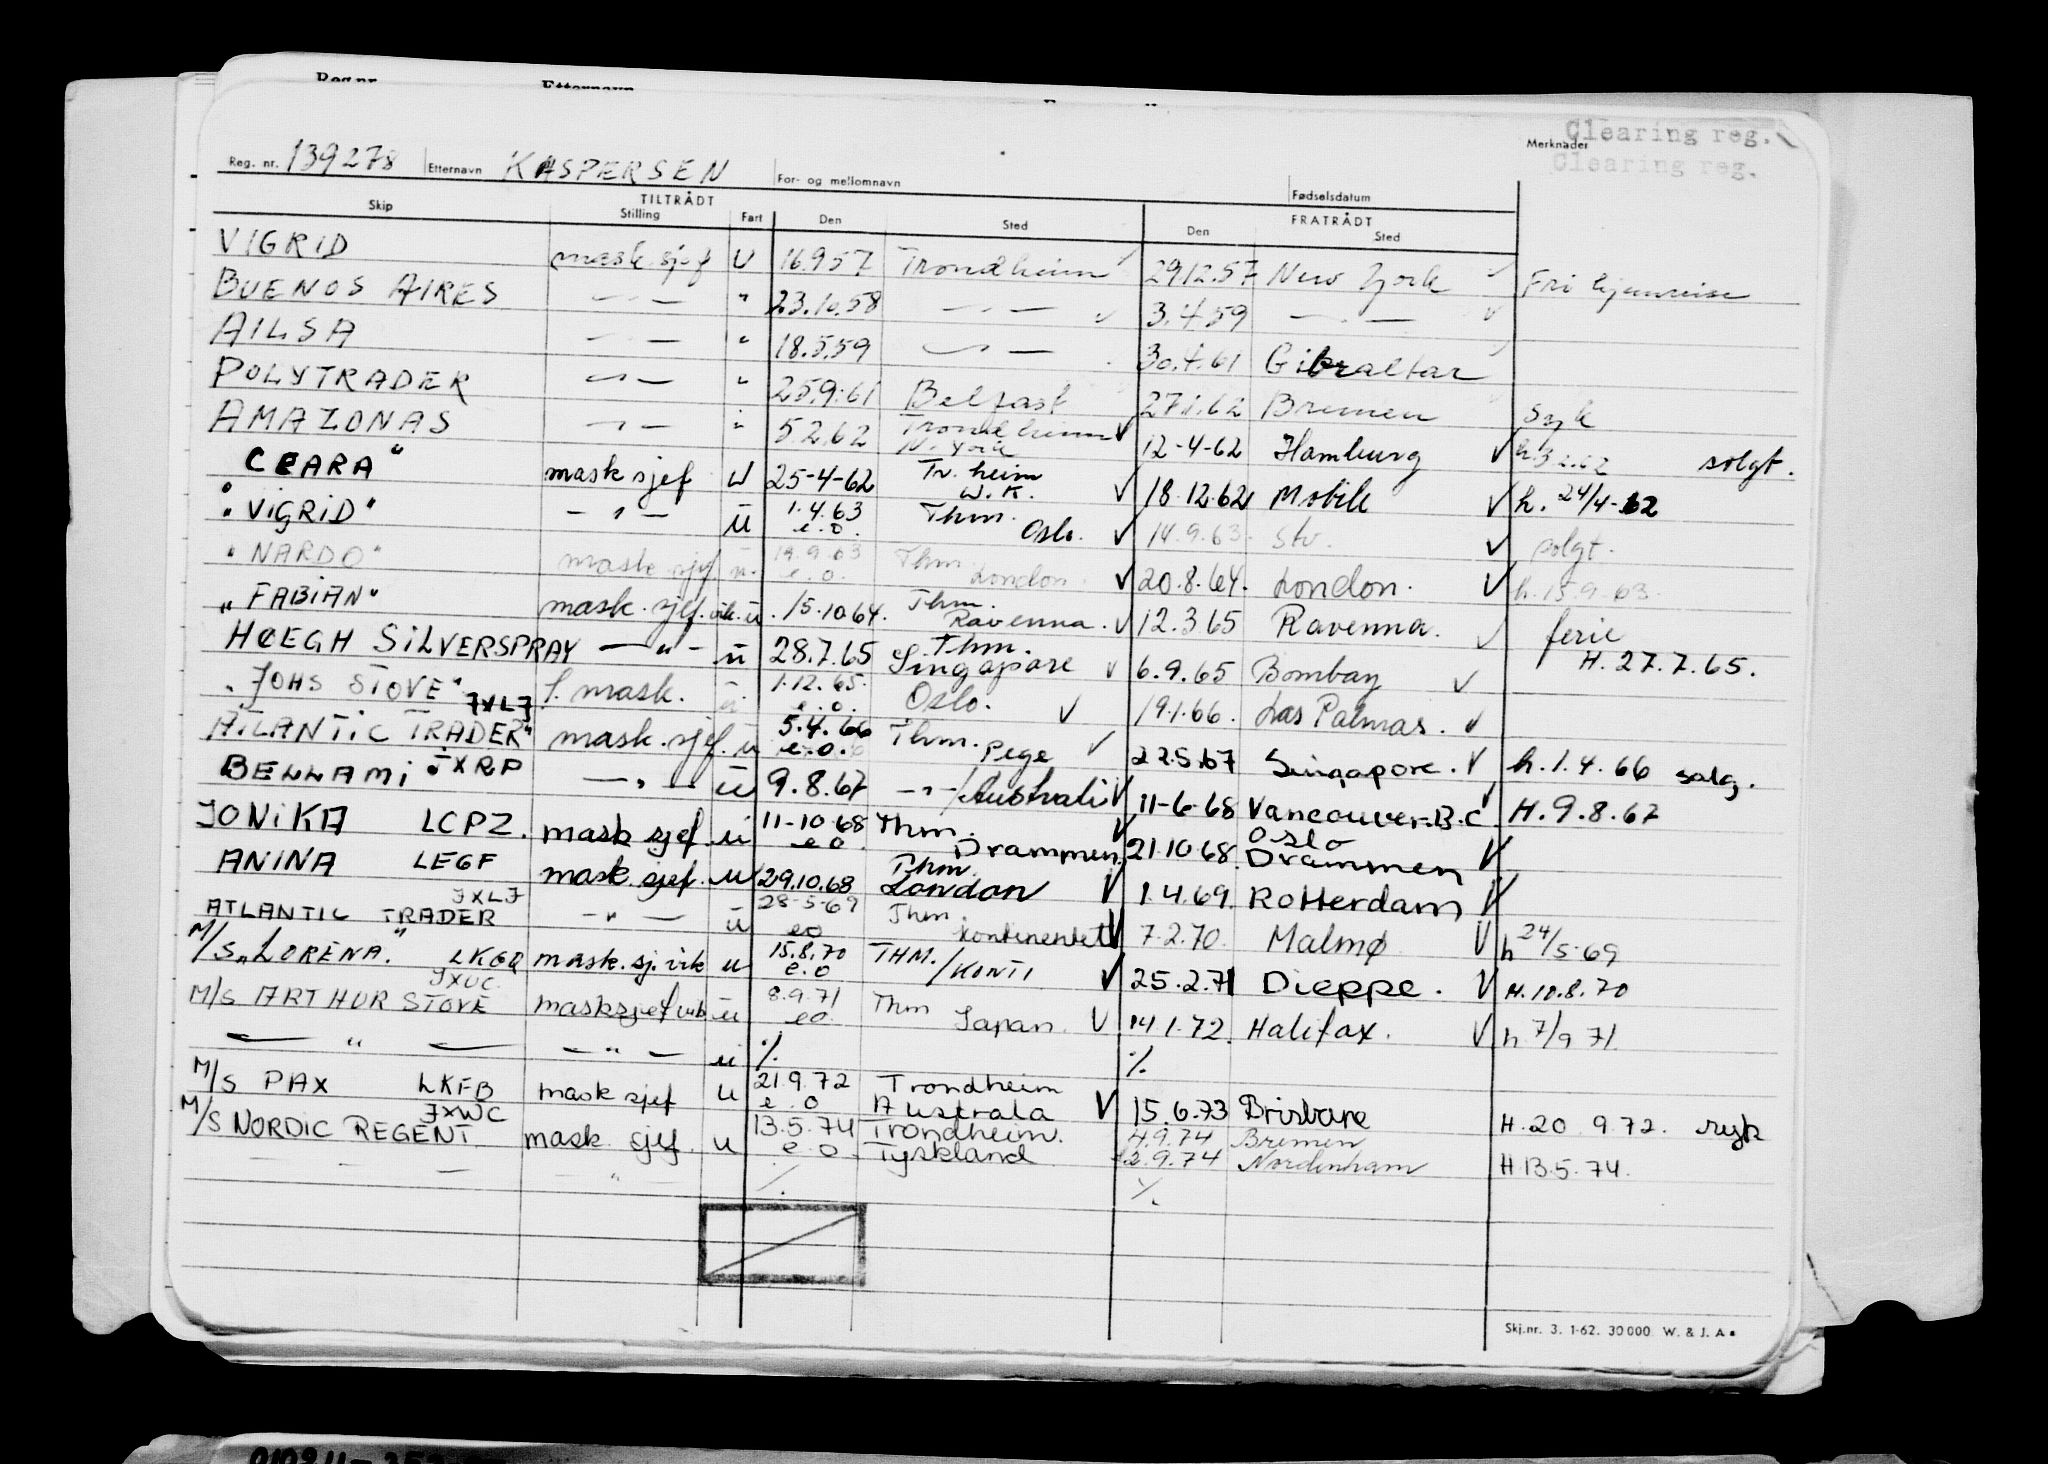 Reg.nr. Etternavn
Clearing reg.
Clearing reg.
Reg. nr. 139278 Etternavn KASPERSEN For- og mellomnavn Fødselsdatum Merknader
TILTRÅDT FRATRÅDT
Skip Stilling Fart Den Sted Den Sted
VIGRID mask sjef U 16.9.57 Trondheim 29.12.57 New York Fri hjemreise
BUENOS AIRES — " — " 23.10.58 — " — 3.4.59 — " —
AILSA — " — " 18.5.59 — " — 30.4.61 Gibraltar
POLYTRADER — " — " 25.9.61 Belfast 27.1.62 Bremen Syk
AMAZONAS — " — " 5.2.62 Trondheim N. York 12-4-62 Hamburg h. 3.2.62 solgt.
CEARA" mask sjef U 25-4-62 Tr. heim W.K. 18.12.62 Mobile h. 24/4-62
"VIGRID" — " — u 1.4.63 e.o. Thm. Oslo. 14.9.63. Stv. solgt.
"NARDO" mask sjef u. 14.9.63 e.o. Thm. London. 20.8.64. London. h. 15.9.63.
"FABIAN" mask. sjef. vik. u. 15.10.64. Thm. Ravenna. 12.3.65 Ravenna. ferie
HØEGH SILVERSPRAY — " — u 28.7.65 Thm. Singapore 6.9.65 Bombay H. 27.7.65.
"JOHS STOVE" 1. mask. u. 1.12.65. e.o. Oslo. 19.1.66. Las Palmas.
ATLANTIC TRADER" JXLJ mask. sjef. u 5.4.66 e.o. Thm. Pege 22.5.67 Singapore. h. 1.4.66 salg.
BELLAMI JXRP — " — u 9.8.67 — " — /Australi 11-6-68 Vancouver B.C. H. 9.8.67
JONIKA LCPZ. mask sjef u 11-10-68 e.o. Thm. Drammen. 21.10.68. Oslo Drammen
ANINA LEGF mask. sjef. u 29.10.68 Thm. London 1.4.69. Rotterdam
ATLANTIC TRADER JXLJ — " — u 28-5-69 eo Thm. kontinentet 7.2.70. Malmø h 24/5-69
M/S "LORENA." LKGQ mask. sj. vik u 15.8.70 e.o THM./KONTI 25.2.71 Dieppe. H. 10.8.70
M/S ARTHUR STOVE JXUC. masksjef vik u 8.9.71 eo. Thm Japan. 14.1.72. Halifax. h 7/9 71.
— " — — " — u ٪ ٪
M/S PAX LKFB mask sjef u 21.9.72 e.o Trondheim Australa 15.6.73 Brisbane H. 20.9.72. syk
M/S NORDIC REGENT JXWC mask. sjef. u 13.5.74 e.o. Trondheim. Tyskland 4.9.74 Bremen 12.9.74 Nordenham H. 13.5.74.
— — — " — ٪ ٪
Skj.nr. 3. 1-62. 30 000. W. & J. A.